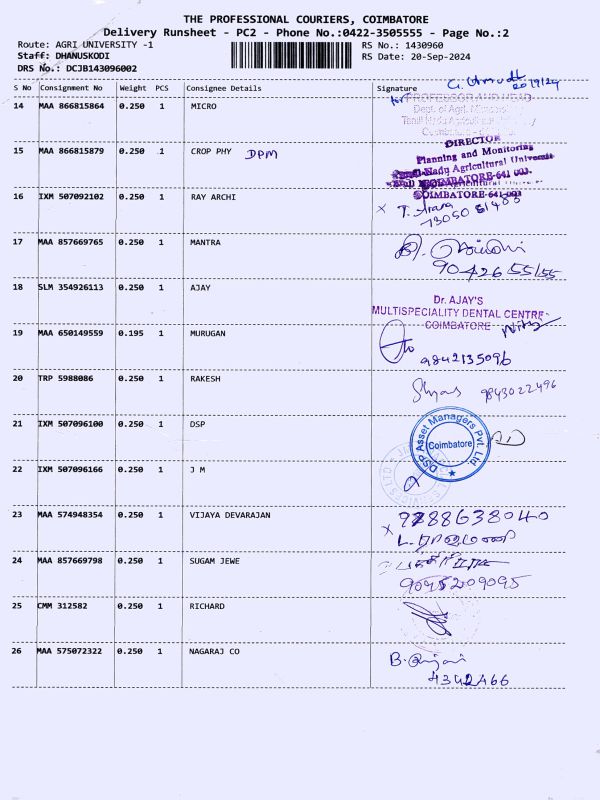 THE PROFESSIONAL COURIERS, COIMBATORE
Delivery Runsheet - PC2 - Phone No.:0422-3505555 - Page No.:2
Route: AGRI UNIVERSITY -1
RS No.: 1430960
Staff: DHANUSKODI
RS Date: 20-Sep-2024
DRS No.: DCJB143096002
S No Consignment No Weight PCS Consignee Details Signature
20/9/24
14 MAA 866815864 0.250 1 MICRO
for PROFESSOR AND HEAD
Dept. of Agrl.
Tamil Nadu Agricultural
15 MAA 866815879 0.250 1 CROP PHY DPM
DIRECTOR
Planning and Monitoring
Tamil Nadu Agricultural University
COIMBATORE-641 003.
16 IXM 507092102 0.250 1 RAY ARCHI
COIMBATORE-641 003
17 MAA 857669765 0.250 1 MANTRA
90426 55155
18 SLM 354926113 0.250 1 AJAY
Dr. AJAY'S
MULTISPECIALITY DENTAL CENTRE
COIMBATORE
19 MAA 650149559 0.195 1 MURUGAN
9842135096
20 TRP 5988086 0.250 1 RAKESH
9843022496
21 IXM 507096100 0.250 1 DSP
DSP Asset Managers Pvt. Ltd
Coimbatore
22 IXM 507096166 0.250 1 J M
23 MAA 574948354 0.250 1 VIJAYA DEVARAJAN
x 9788638040
24 MAA 857669798 0.250 1 SUGAM JEWE
25 CMM 312582 0.250 1 RICHARD
26 MAA 575072322 0.250 1 NAGARAJ CO
4342466